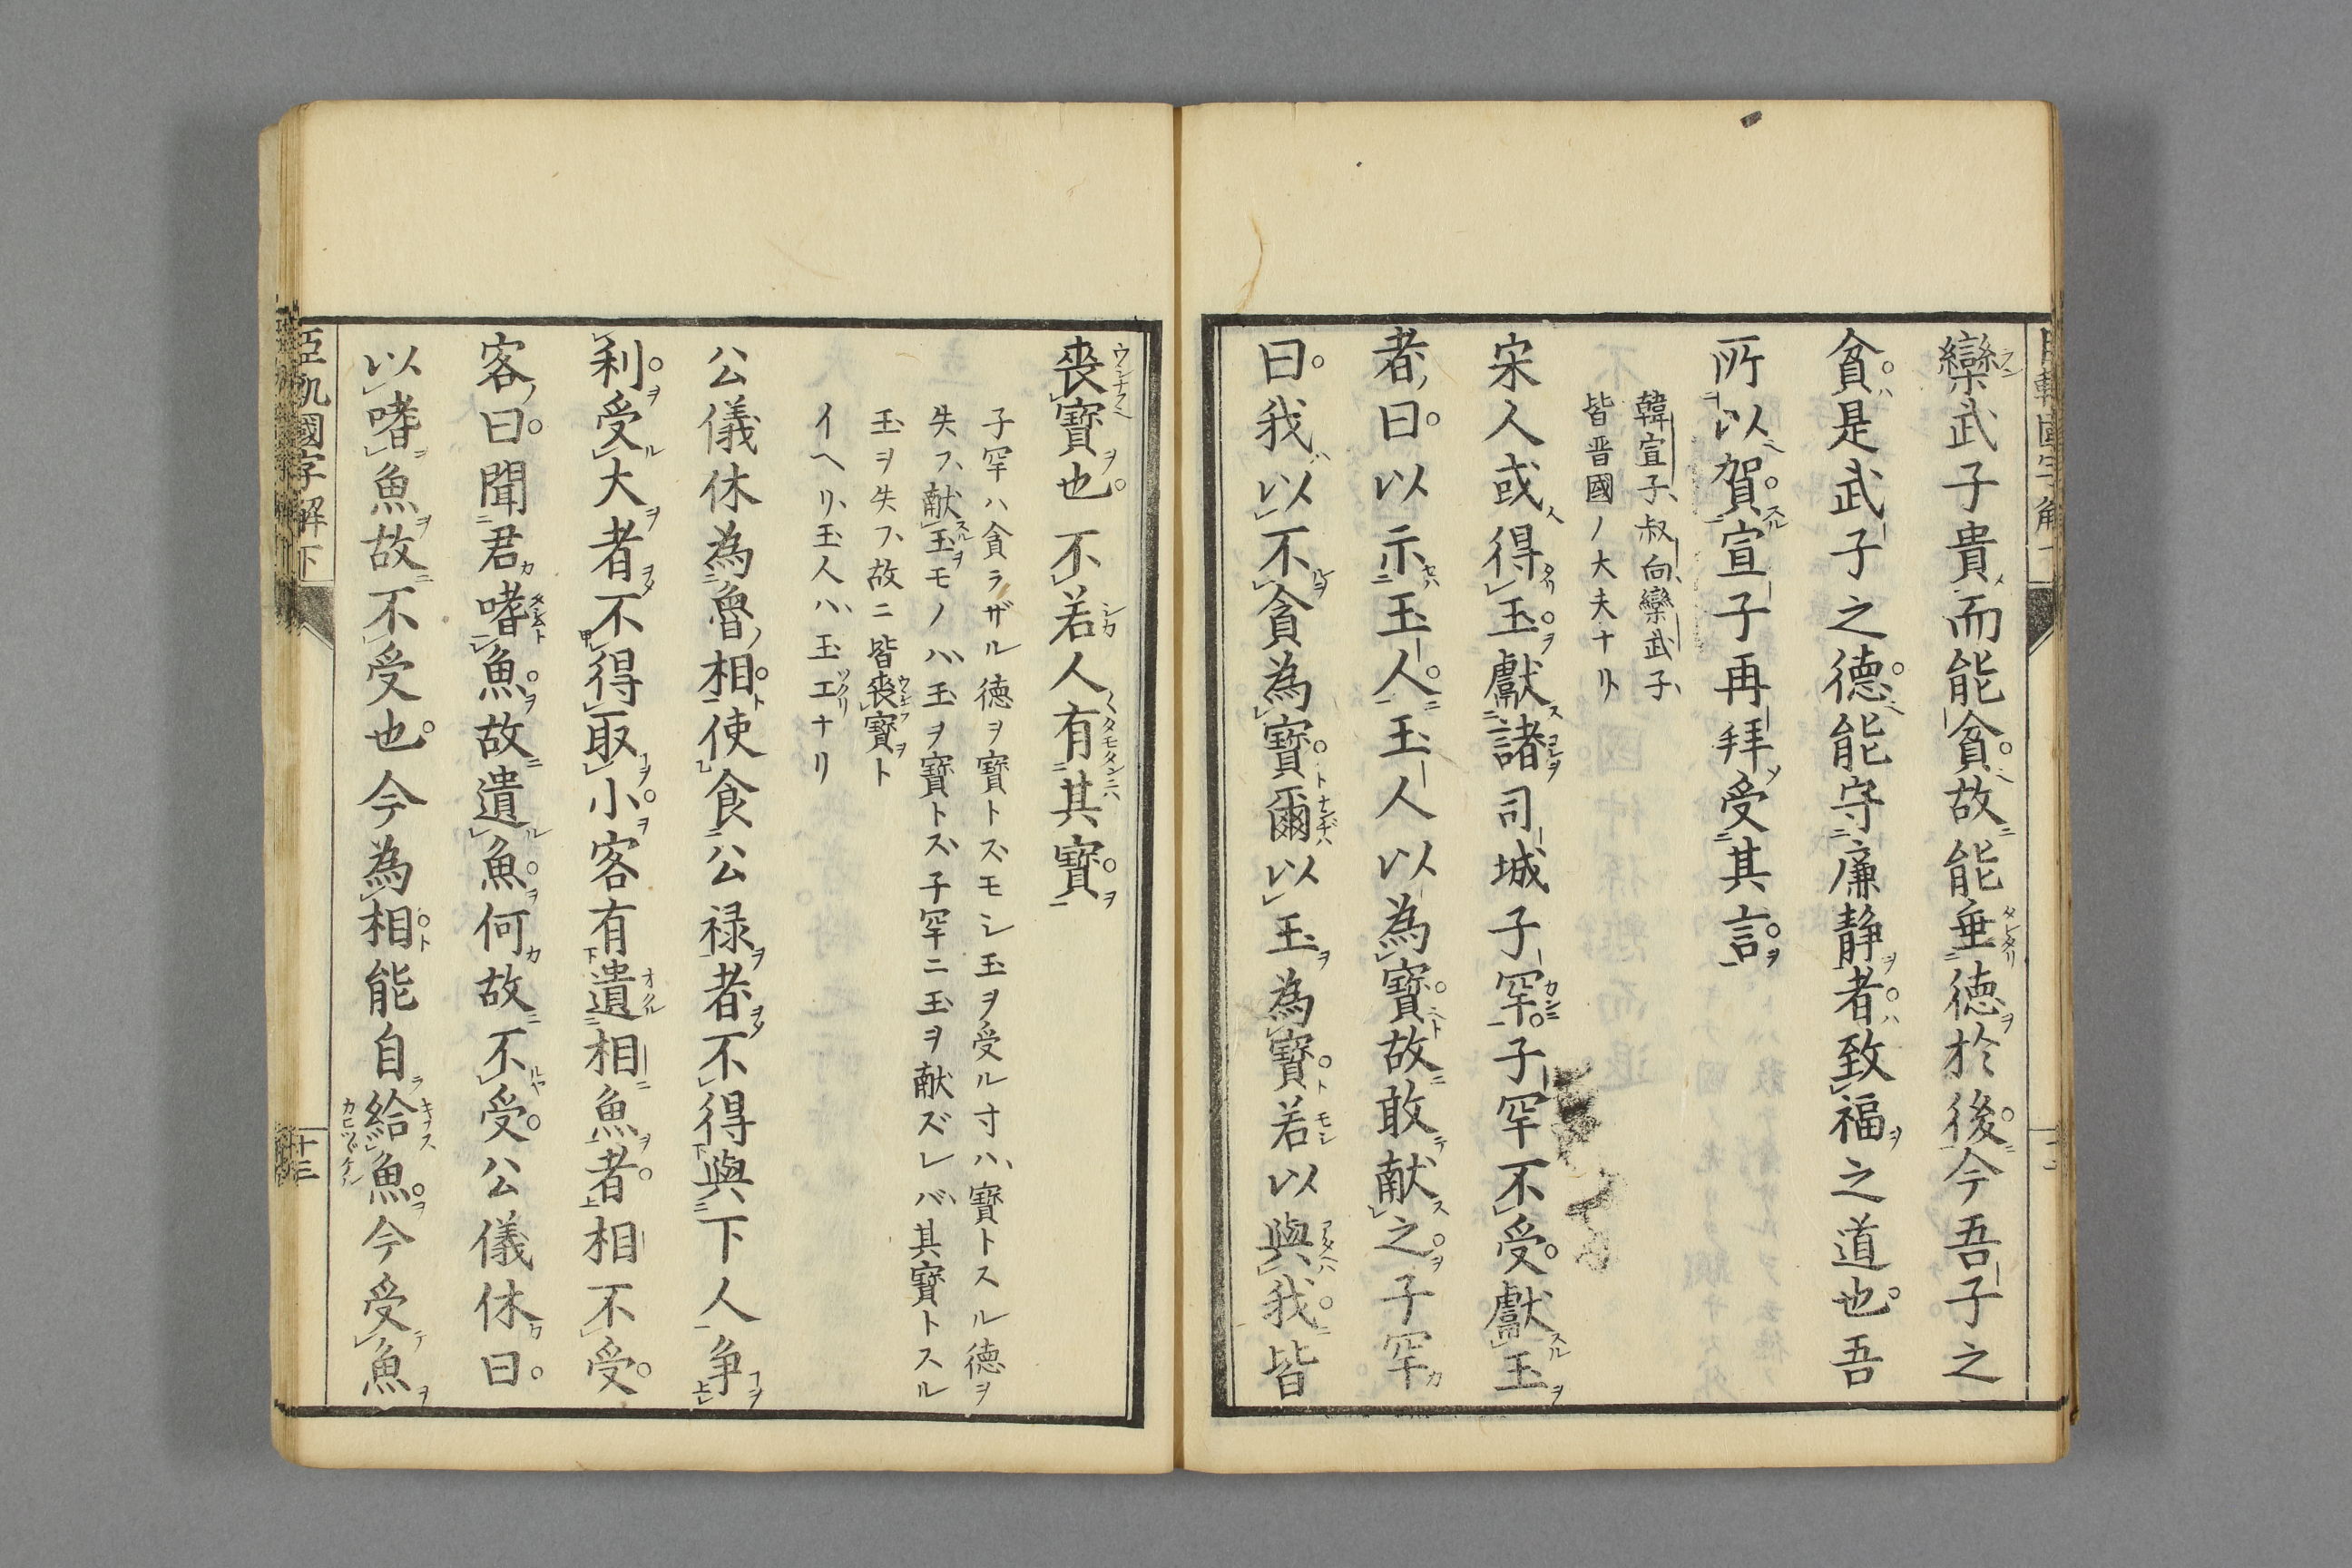 欒武子貴而能貧故能垂徳於後今吾子之
貧是武子之德能守廉静者致福之道也吾
所以賀宣子再拜受其言
韓宣子、叔向、欒武子、
皆晋國ノ大夫ナリ
宋人或得玉獻諸司城子罕子罕不受獻玉
者曰以示玉人玉人以為寶故敢献之子罕
曰我以不貪為寶爾以玉為寶若以與我皆
喪寶也不若人有其寶
子罕ハ貪ラザル徳ヲ寶トズモシ玉ヲ受ル寸ハ、寶トスル徳ヲ
失フ、献玉モノハ、玉ヲ寶トズ、子罕ニ玉ヲ献ズレバ、其寶トスル
玉ヲ失フ、故ニ皆喪寶ト
イヘリ、玉人ハ、玉工ナリ
公儀休為魯相使食公禄者不得與下人争
利受大者不得取小客有遺相魚者相不受
客曰聞君嗜魚故遺魚何故不受公儀休曰
以嗜魚故不受也今為相能自給魚今受魚
國字解下
十三